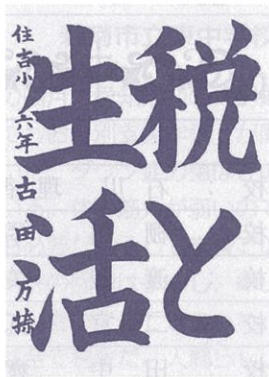 税と
生活
住吉小 六年 古田 万捺